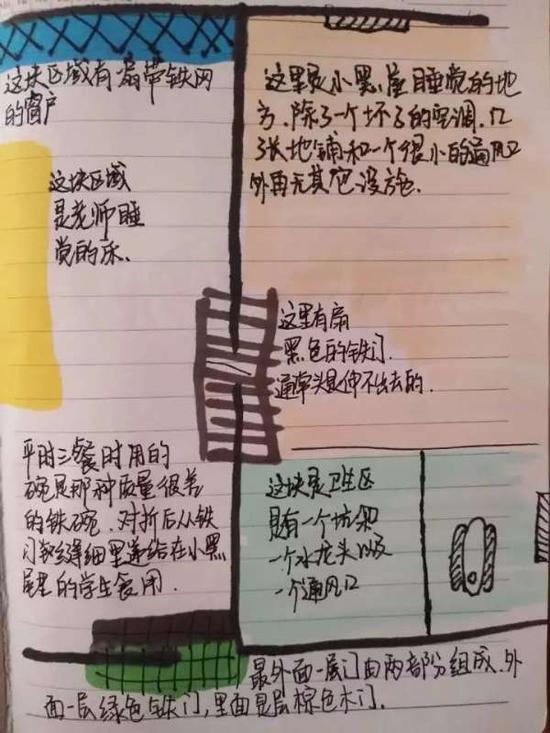 这块区域有扇带铁网
的窗户
这里是小黑屋睡觉的地
方、除了一个坏了的空调、几
张地铺和一个很小的通风口
外再无其它设施.
这块区域
是老师睡
觉的床.
这里有扇
黑色的铁门.
通常头是伸不出去的.
平时三餐时用的
碗是那种质量很差
的铁碗.对折后从铁
门缝细里递给在小黑
屋里的学生食用.
这块是卫生区
只有一个坑和
一个水龙头以及
一个通风口
最外面一层门由两部分组成.外
面一层绿色铁门,里面是层棕色木门.